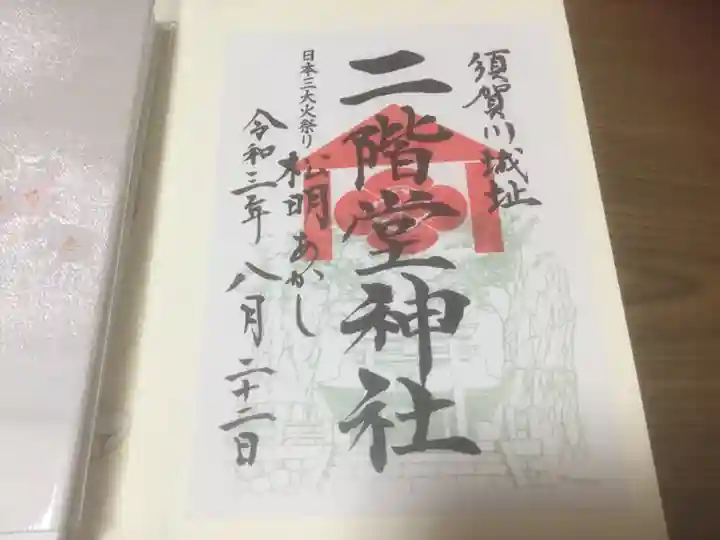 須賀川城址
二階堂神社
日本三大火祭り
松明あかし
令和三年八月二十二日